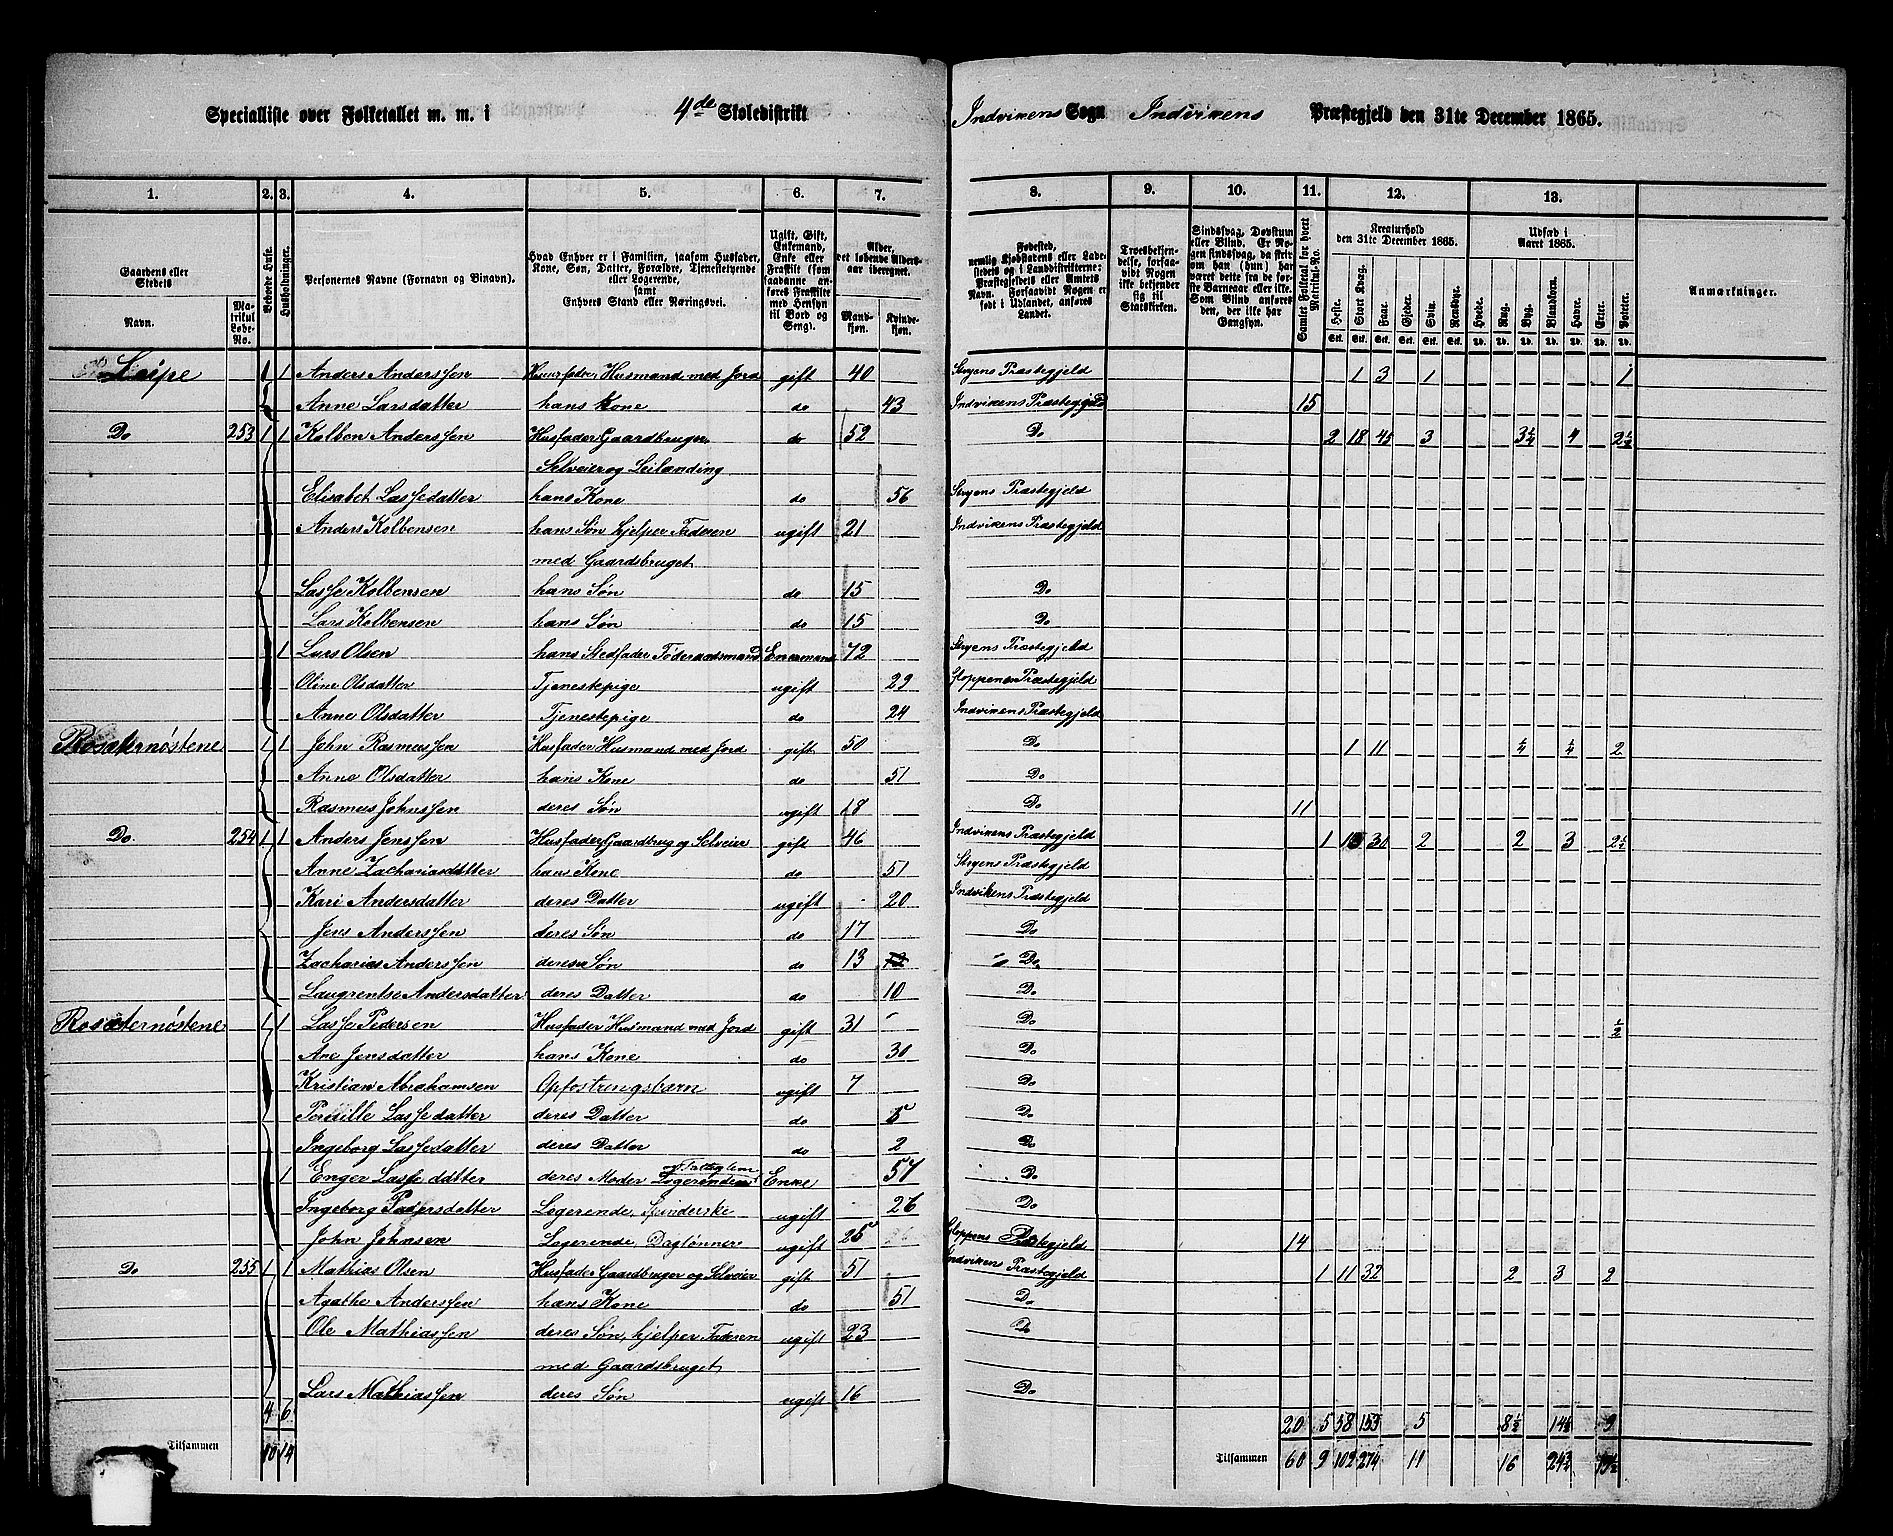 Specialliste over Folketallet m. m. i 4de Skoledistrikt Indvikens Sogn Indvikens Præstegjeld den 31te December 1865.
1. 2. 3. 4. 5. 6. 7. 8. 9. 10. 11. 12. 13.
Gaardens eller Stedets Navn. Matrikul Løbe-No. Beboede Huse. Husholdninger. Personernes Navne (Fornavn og Binavn). Hvad Enhver er i Familien, saasom Husfader, Kone, Søn, Datter, Forældre, Tjenestetyende eller Logerende, samt Enhvers Stand eller Næringsvei. Ugift, Gift, Enkemand, Enke eller Fraskilt (som saadanne anføres Fraskilte med Hensyn til Bord og Seng). Alder, det løbende Alders-aar iberegnet. Mandkjøn. Kvindekjøn. Fødested, nemlig Kjøbstadens eller Ladestedets og i Landdistrikterne: Præstegjeldets eller Amtets Navn. Forsaavidt Nogen er født i Udlandet, anføres Landet. Troesbekjendelse, forsaavidt Nogen ikke bekjender sig til Statskirken. Sindssvag, Døvstum eller Blind. Er Nogen sindssvag, da skrives om han (hun) har været dette fra de første Barneaar eller ikke. Som Blind anføres den, der ikke har Gangsyn. Samlet Folketal for hvert Matrikul-No. Kreaturhold den 31te December 1865. Heste. Stort Kvæg. Faar. Gjeder. Svin. Rensdyr. Udsæd i Aaret 1865. Hvede. Rug. Byg. Blandkorn. Havre. Erter. Poteter. Anmærkninger.
Leipe 1 1 Anders Anderssen Huusfader, Husmand med Jord gift 40 Stryens Præstegjeld 1 3 1 1
Anne Larsdatter hans Kone do 43 Indvikens Præstegjeld 15
Do 253 1 1 Kolben Anderssen Husfader Gaardbruger do 52 Do 2 18 45 3 3¼ 7 2½
Selveier og Leilænding
Elisabet Lassedatter hans Kone do 56 Stryens Præstegjeld
Anders Kolbensen hans Søn hjelper Faderen ugift 21 Indvikens Præstegjeld
med Gaardsbruget
Lasse Kolbensen hans Søn do 15 Do
Lars Kolbensen hans Søn do 15 Do
1 Lars Olsen hans Stedfader Føderaadsmand Enkemand 72 Stryens Præstegjeld
Oline Olsdatter Tjenestepige ugift 29 Gloppenen Præstegjeld
Anne Olsdatter Tjenestepige do 24 Indvikens Præstegjeld
Rosæternøstene 1 1 John Rasmussen Husfader Husmand med Jord gift 50 Do 1 11 ¼ ¼ 2
Anne Olsdatter hans Kone do 51 Do
Rasmus Johnssen deres Søn ugift 18 Do 11
Do. 254 1 1 Anders Jenssen Husfader Gaardbrug og Selveier gift 46 Indvikens Præstegjeld 1 30 2 2 3 2½
Anne Zachariasdatter hans Kone do 51 Stryens Præstegjeld
Kari Andersdatter deres Datter ugift 20 Indvikens Præstegjeld
Jens Anderssen deres Søn do 17 Do
Zacharias Anderssen deres Søn do 13 Do
Laugrentse Andersdatter deres Datter do 10 Do
Rosæternøstene 1 1 Lasse Pedersen Husfader Husmand med Jord gift 31 Do ½
Ane Jensdatter hans Kone do 30 Do
Kristian Abrahamsen Opfostringsbarn ugift 7 Do
Pernille Lassedatter deres Datter do 5 Do
Ingeborg Lassedatter deres Datter do 2 Do
1 Enger Lassedatter deres Moder Logerende Enke 57 Do
Ingeborg Pedersdatter Logerende, Spinderske ugift 26 Do
John Johnsen Logerende, Daglønner ugift 25 Gloppens Præstegjeld 14
Do 255 1 1 Mathias Olsen Husfader Gaardbruger og Selveier gift 51 Indvikens Præstegjeld 1 11 32 2 3 2
Agathe Anderssen hans Kone do 51 Do
Ole Mathiassen deres Søn, hjelper Faderen ugift 23 Do
med Gaardsbruget
Lars Mathiassen deres Søn ugift 16 Do
4 6 20 5 58 153 5 8½ 14½ 9
Tilsammen 10 14 Tilsammen 60 9 102 274 11 16 24¾